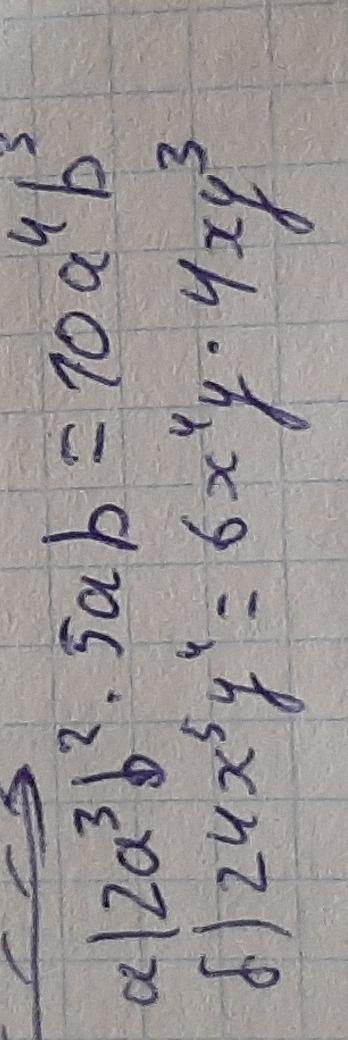 а) 2a³b² · 5ab = 10a⁴b³
б) 24x⁵y⁴ = 6x⁴y · 4xy³